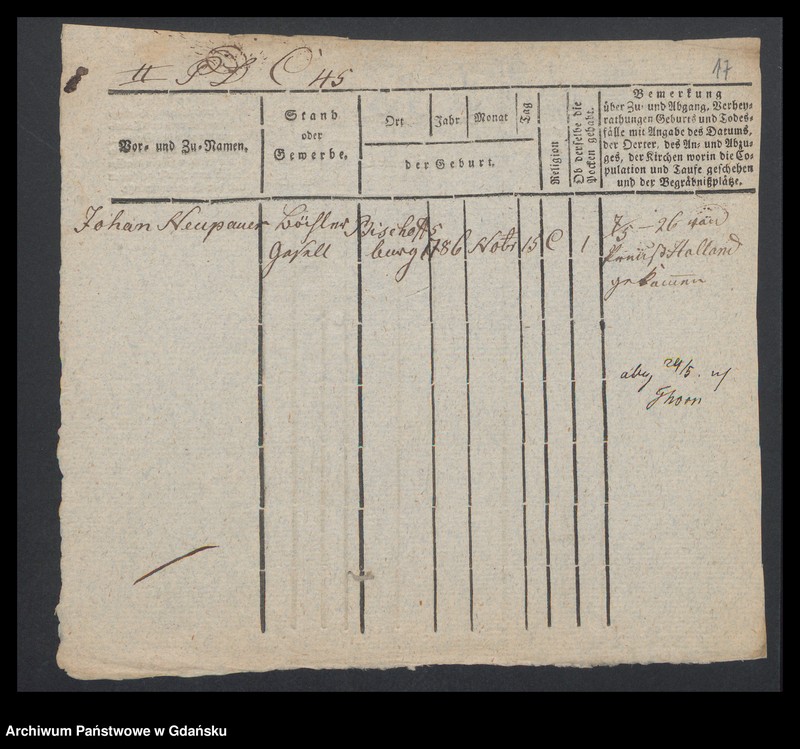 17
C 45
Vor- und Zu-Namen.
Stand
oder
Gewerbe.
Ort
Jahr
Monat
Tag
der Geburt.
Religion
Ob derselbe die
Pocken gehabt.
Bemerkung
über Zu- und Abgang, Verhey-
rathungen Geburts und Todes-
fälle mit Angabe des Datums,
der Oerter, des An- und Abzu-
ges, der Kirchen worin die Co-
pulation und Taufe geschehen
und der Begräbnißplätze.
Johan Neupauer
Gesell
Bischoffs
burg
1786
Nobr
15
C
1
7/5 - 26 von
Preuß Holland
gekommen
abg 24/5. n/
Thorn
Archiwum Państwowe w Gdańsku